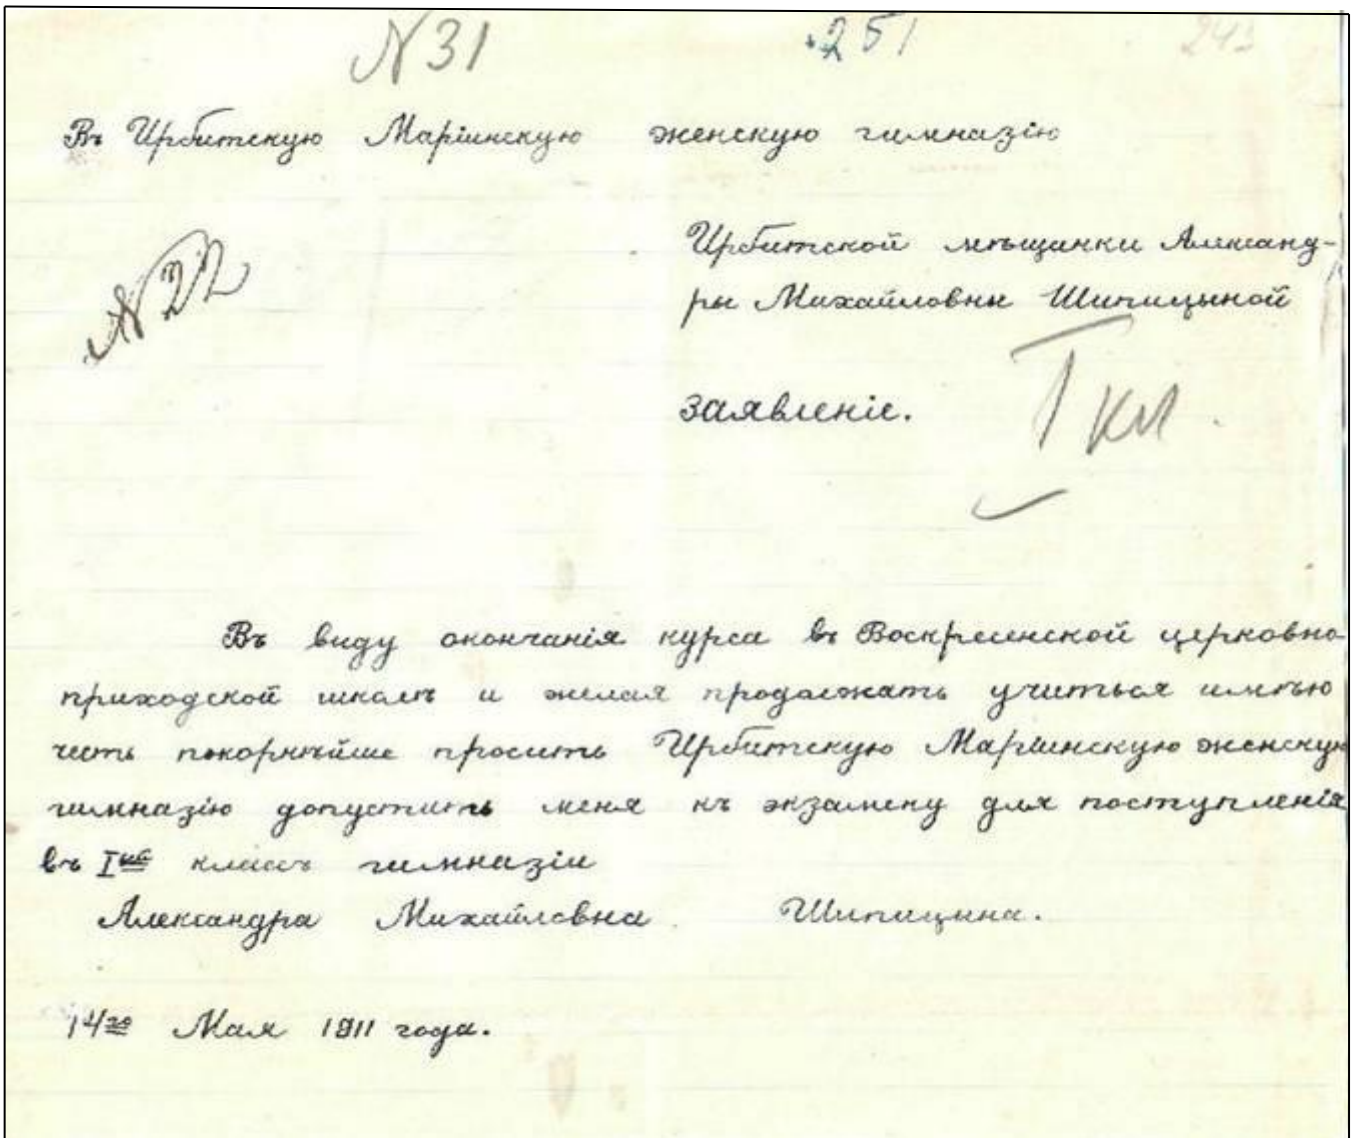 N 31 251 243
Въ Ирбитскую Маріинскую женскую гимназію
Ирбитской мѣщанки Александ-
ры Михайловны Шипицыной
N 22
заявленіе.
I кл.
Въ виду окончанія курса въ Воскресенской церковно-
приходской школѣ и желая продолжать учиться имѣю
честь покорнѣйше просить Ирбитскую Маріинскую женскую
гимназію допустить меня къ экзамену для поступленія
въ Iый классъ гимназіи
Александра Михайловна Шипицына.
14го Мая 1911 года.